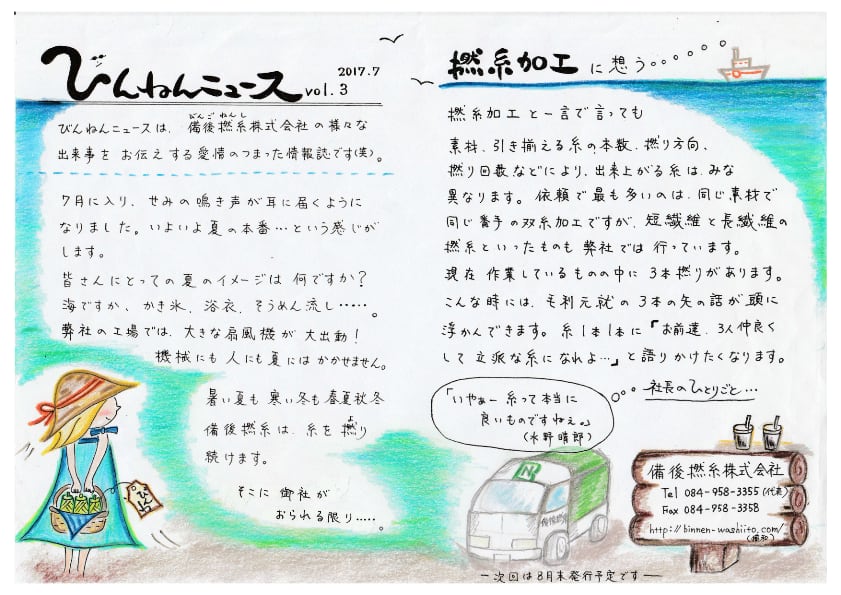 びんねんニュース vol.3
2017.7
びんねんニュースは、備後撚糸株式会社の様々な
びんご ねんし
出来事を お伝えする愛情のつまった情報誌です(笑)。
7月に入り、せみの鳴き声が耳に届くように
なりました。いよいよ夏の本番…という感じが
します。
皆さんにとっての夏のイメージは 何ですか?
海ですか、かき氷、浴衣、そうめん流し……。
弊社の工場では、大きな扇風機が大出動!
機械にも人にも夏にはかかせません。
暑い夏も 寒い冬も春夏秋冬
備後撚糸は、糸を撚り
よ
続けます。
そこに 御社が
おられる限り……。
びん吉
撚糸加工に想う。。。。。。
撚糸加工と一言で言っても
素材、引き揃える糸の本数、撚り方向、
撚り回数などにより、出来上がる糸は、みな
異なります。依頼で最も多いのは、同じ素材で
同じ番手の双糸加工ですが、短繊維と長繊維の
撚糸といったものも 弊社では 行っています。
現在 作業しているものの中に 3本撚りがあります。
こんな時には、毛利元就の 3本の矢の話が頭に
浮かんできます。糸1本1本に「お前達、3人仲良く
して 立派な糸になれよ…」と語りかけたくなります。
社長のひとりごと…
「いやぁー 糸って本当に
良いものですねぇ。」
(水野晴郎)
備後撚糸
備後撚糸株式会社
Tel 084-958-3355(代表)
Fax 084-958-3358
http://binnen-washiito.com/
ー次回は8月末発行予定ですー